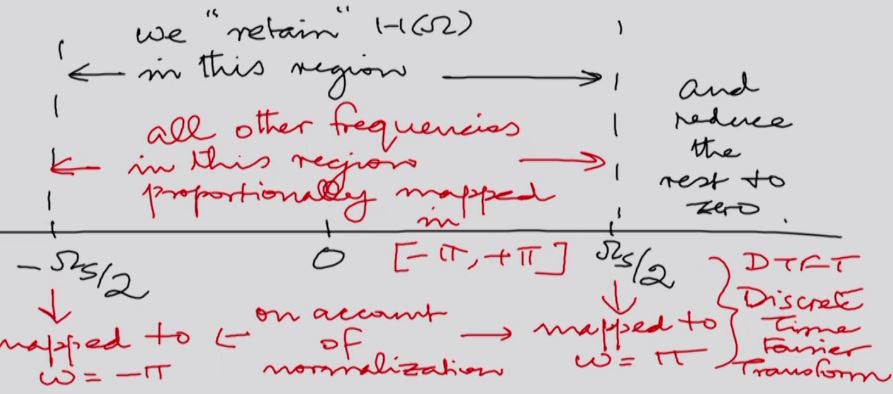 we "retain" H(Ω)
in this region
and
reduce
the
rest to
zero.
all other frequencies
in this region
proportionally mapped
in
[-π, +π]
-Ωs/2
0
Ωs/2
mapped to
ω = -π
on account
of
normalization
mapped to
ω = π
DTFT
Discrete
Time
Fourier
Transform